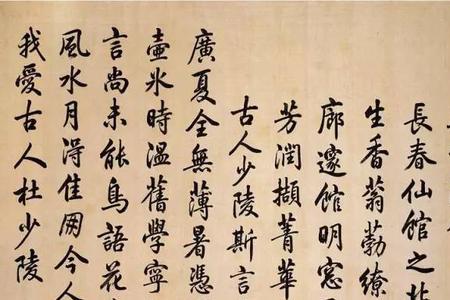 長春仙館之北
生香蓊勃繚
廊邃館明窓
芳潤擷菁華
古人少陵斯言
廣夏全無薄暑憑
壺氷時溫舊學寧
言尚未能鳥語花
風水月淂佳今人
我愛古人杜少陵